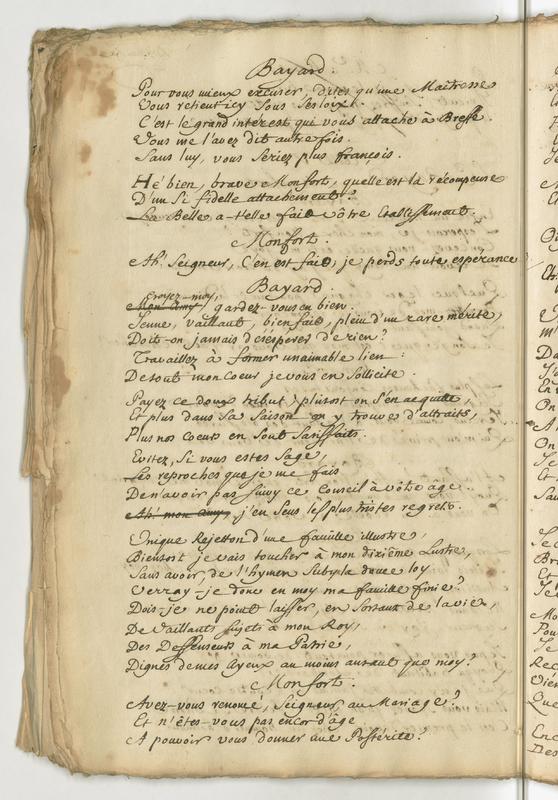 Bayard.
Pour vous mieux excuser, dites qu'une Maitresse
Vous retient icy sous ses loix.
C'est le grand interest qui vous attache à Bresse.
Vous me l'avez dit autre fois.
Sans luy, vous seriez plus françois.
Hé bien, brave Monfort, quelle est la récompense
D'un si fidelle attachement?
La Belle a-t'elle fait vôtre Etablissement.
Monfort.
Ah! Seigneur, c'en est fait, je perds toute espérance
Bayard.
Croyez-moy,
Mon Amy, gardez-vous en bien.
Jeune, vaillant, bien fait, plein d'un rare mérite,
Doit-on jamais désesperer de rien?
Travaillez à former un aimable lien:
De tout mon coeur je vous en sollicite.
Payez ce doux tribut; plûtost on s'en acquitte,
Et plus dans sa saison on y trouve d'attraits,
Plus nos coeurs en sont satisfaits.
Evitez, si vous estes sage,
Les reproches que je me fais
De n'avoir pas suivy ce conseil à vôtre âge.
Ah! mon Amy, j'en sens les plus tristes regrets.
Unique Rejetton d'une famille illustre,
Bientost je vais toucher à mon dixième Lustre,
Sans avoir, de l'hymen subi la douce loy
Verray-je donc en moy ma famille finie?
Dois-je ne point laisser, en sortant de la vie,
De Vaillants sujets à mon Roy,
Des Deffenseurs à ma Patrie,
Dignes de mes Ayeux au moins autant que moy?
Monfort.
Avez-vous renoncé, Seigneur, au Mariage?
Et n'êtes-vous pas encor d'âge
A pouvoir vous donner une Postérité?